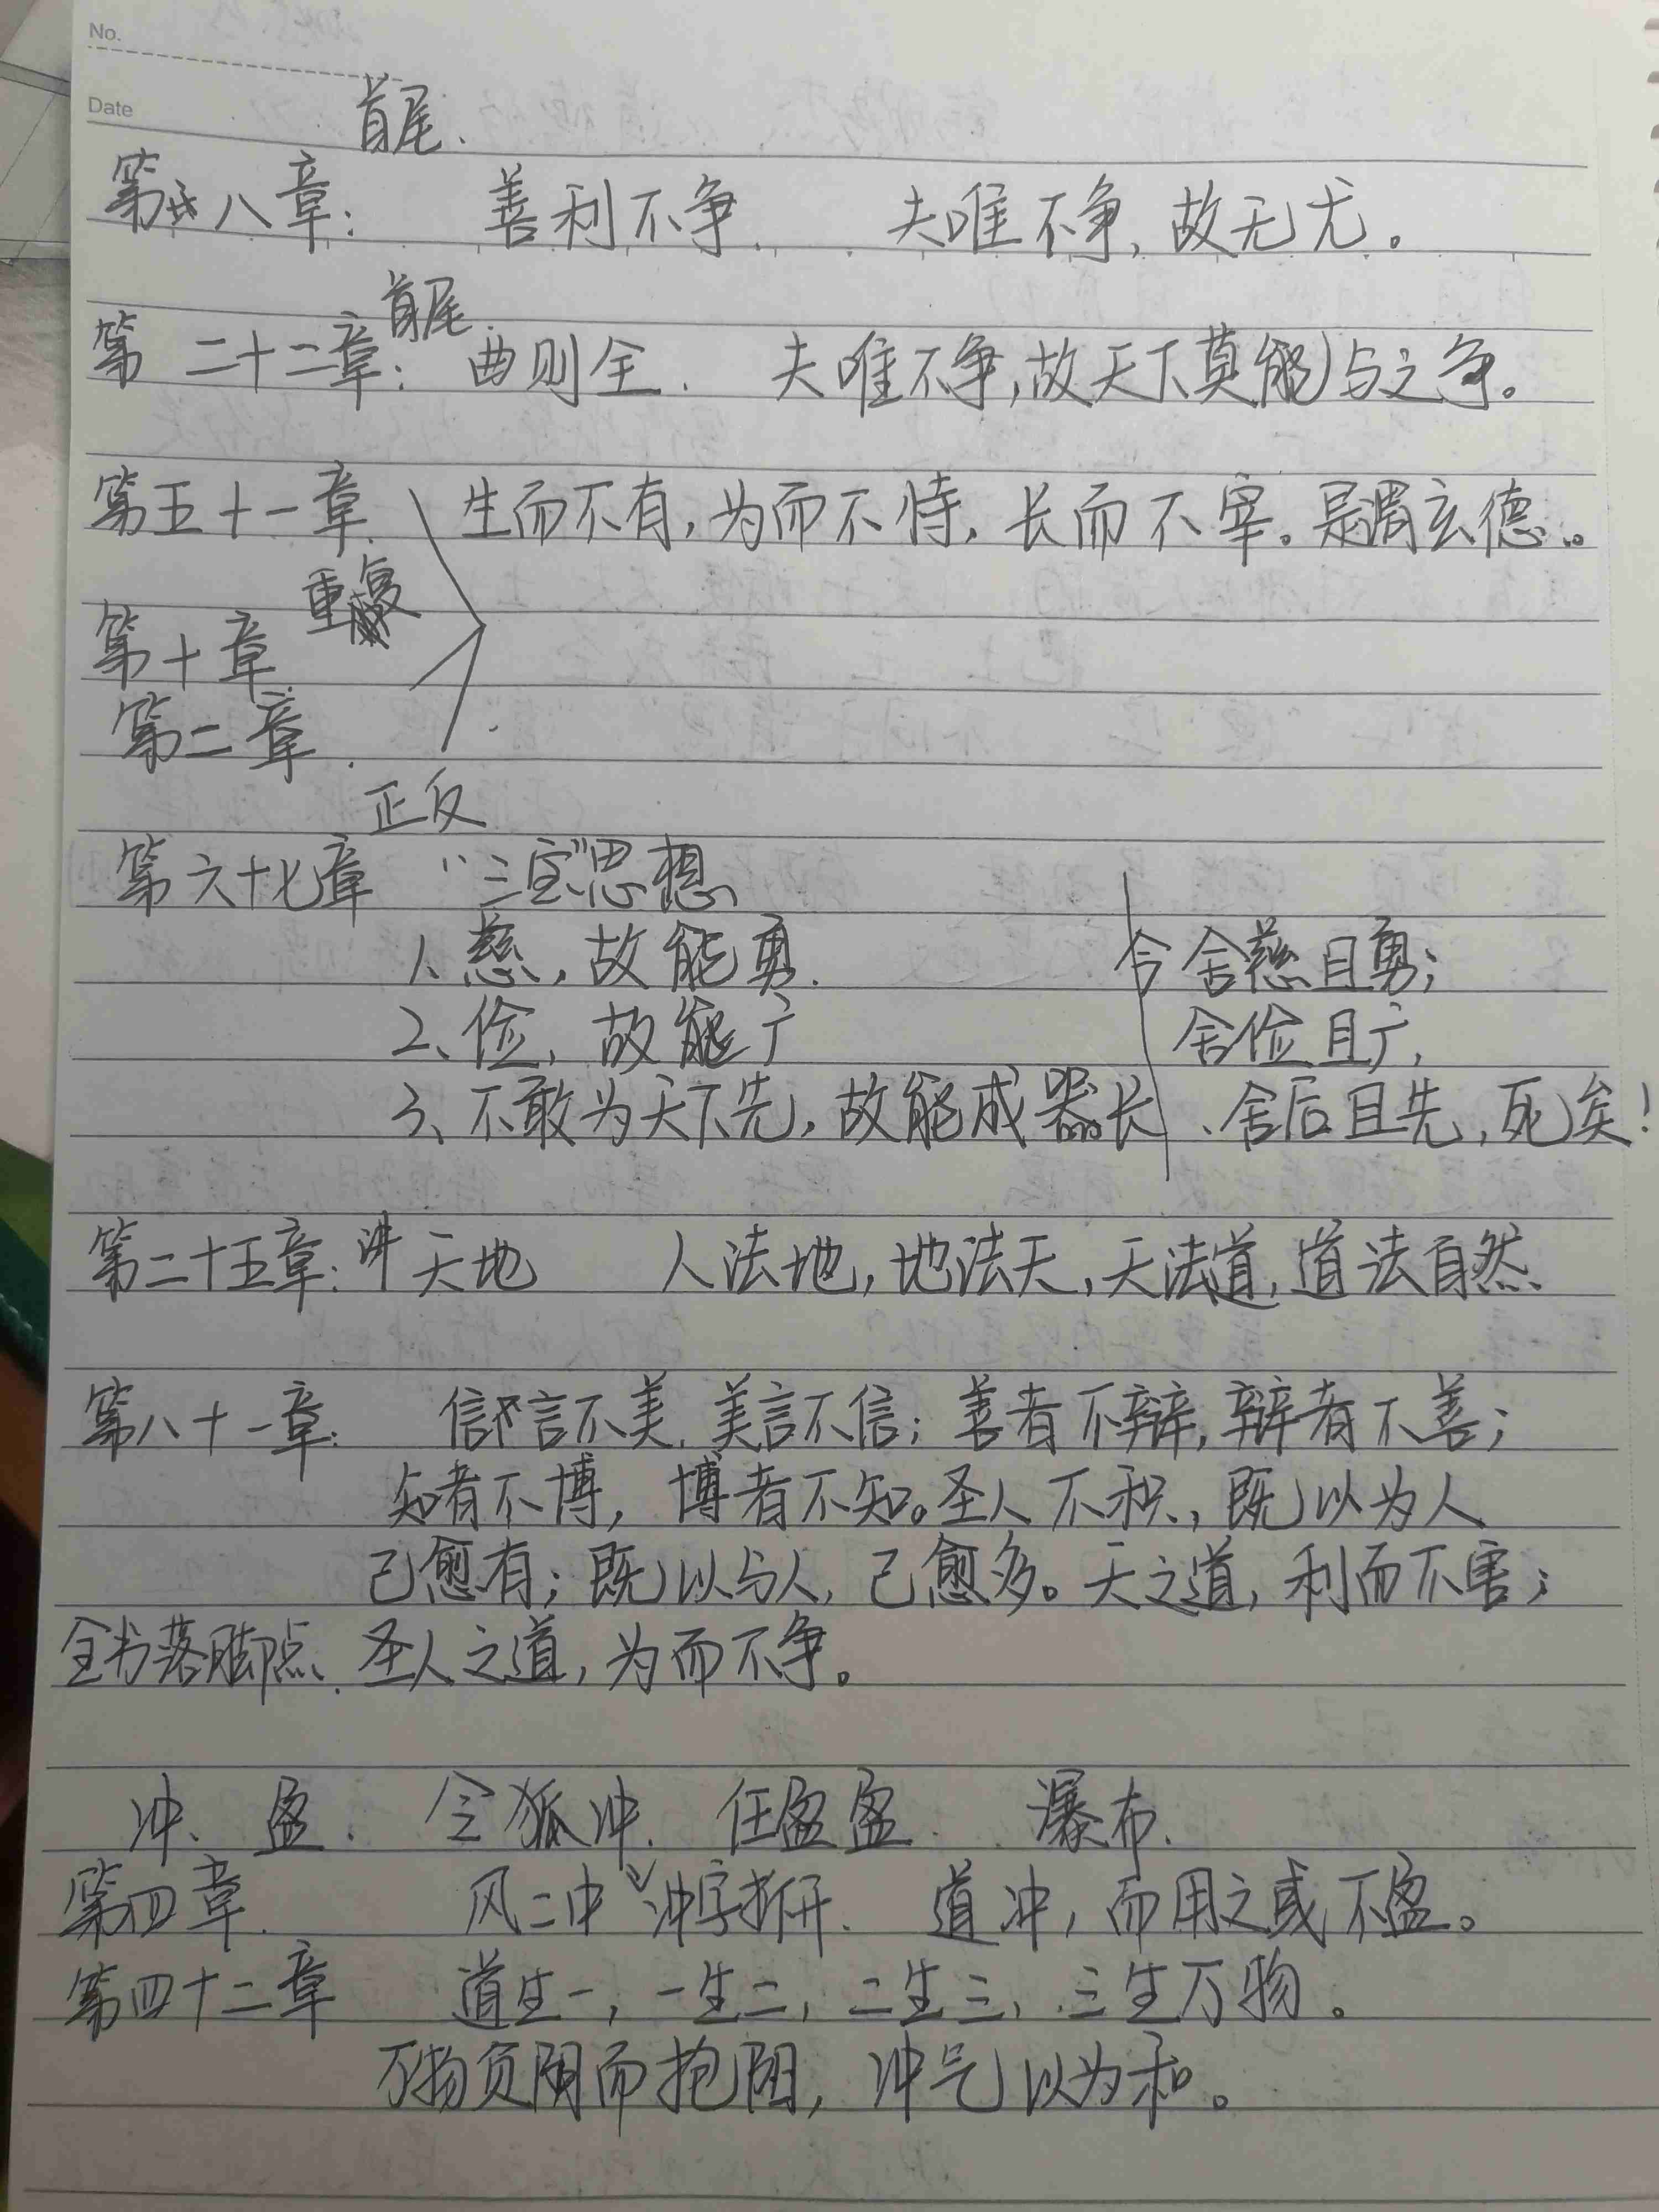 No.
Date
首尾.
第八章: 善利不争. 夫唯不争,故无尤。
首尾.
第二十二章: 曲则全. 夫唯不争,故天下莫能与之争。
第五十一章. 生而不有,为而不恃,长而不宰。是谓玄德。
重复
第十章.
第二章.
正反
第六十七章 “三宝”思想
1、慈,故能勇. 今舍慈且勇;
2、俭,故能广 舍俭且广,
3、不敢为天下先,故能成器长、舍后且先,死矣!
第二十五章: 讲天地 人法地,地法天,天法道,道法自然
第八十一章. 信言不美,美言不信;善者不辩,辩者不善;
知者不博,博者不知。圣人不积,既以为人
己愈有;既以与人,己愈多。天之道,利而不害;
全书落脚点. 圣人之道,为而不争。
冲、盈. 令狐冲. 任盈盈. 瀑布.
第四章. 风二中 冲字拆开. 道冲,而用之或不盈。
第四十二章 道生一,一生二,二生三,三生万物。
万物负阴而抱阳,冲气以为和。